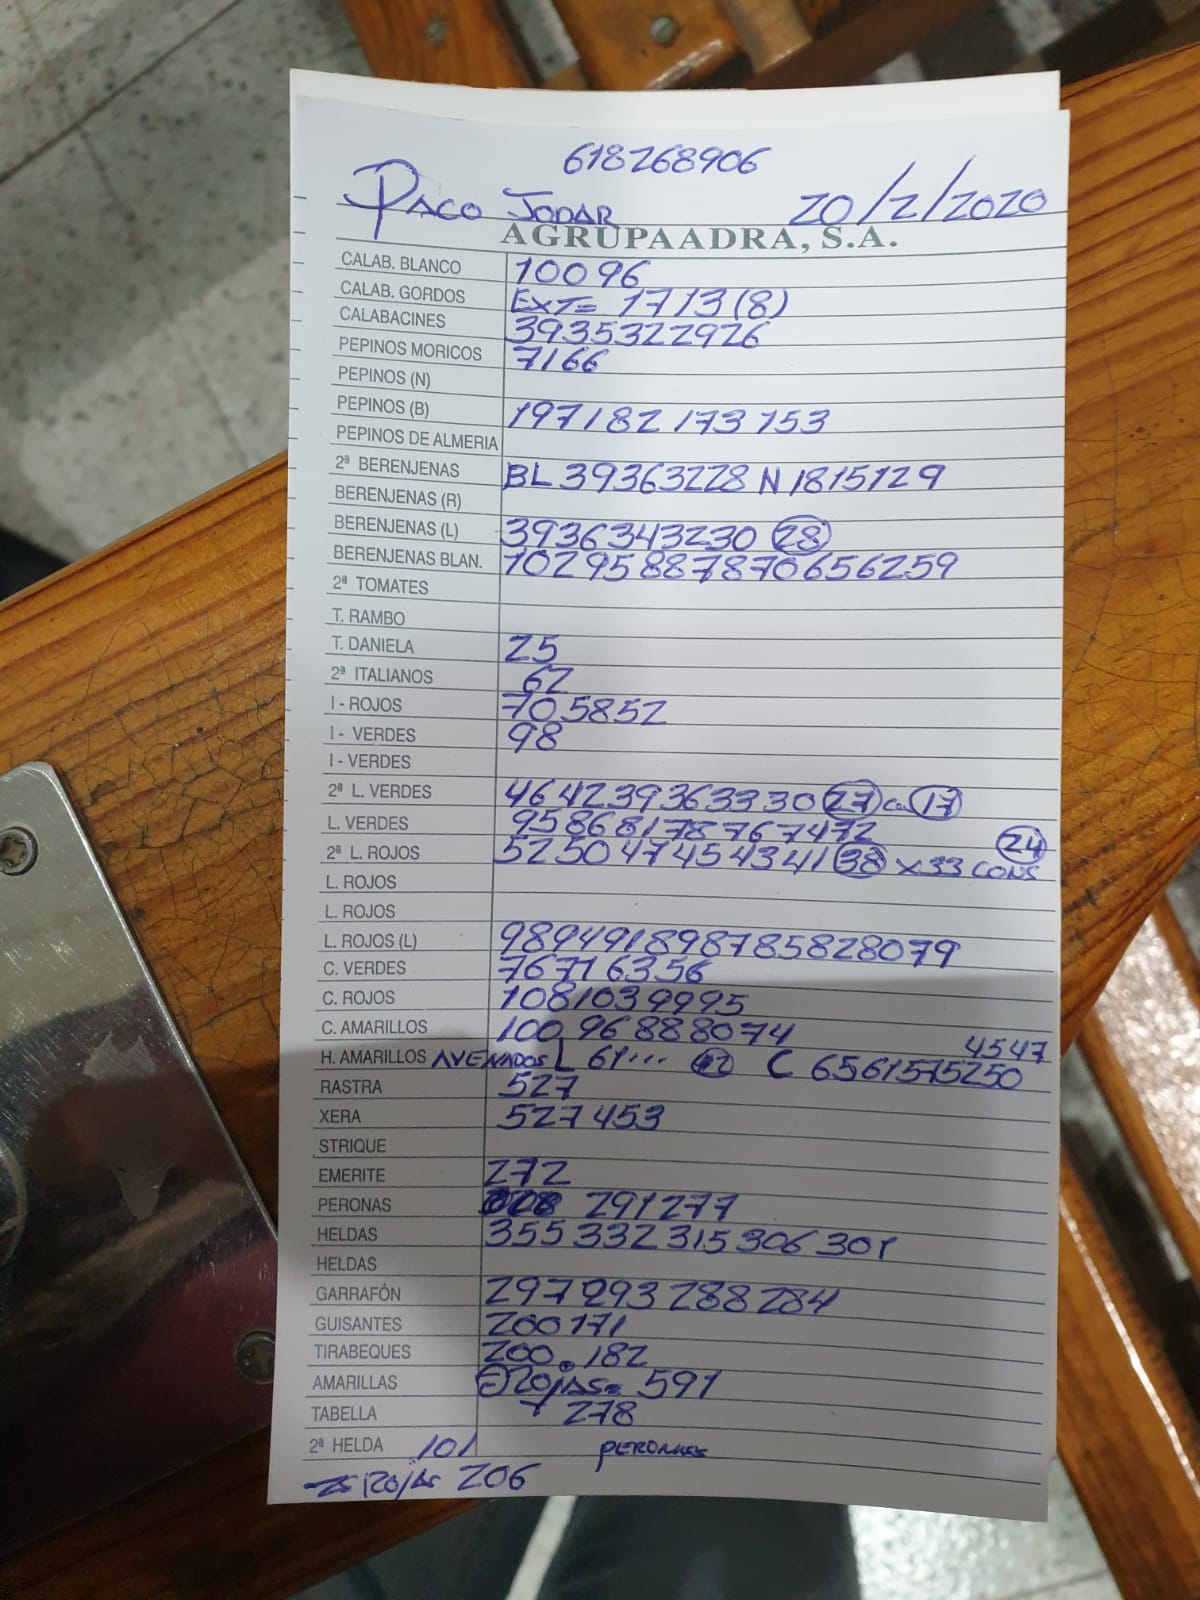 618268906
PACO JODAR 20/2/2020
AGRUPAADRA, S.A.
CALAB. BLANCO 100 96
CALAB. GORDOS EXT= 1713(8)
CALABACINES 3935322926
PEPINOS MORICOS 7166
PEPINOS (N)
PEPINOS (B) 197182 173 153
PEPINOS DE ALMERIA
2ª BERENJENAS BL 39363228 N 1815129
BERENJENAS (R)
BERENJENAS (L) 3936343230 28
BERENJENAS BLAN. 10295887870656259
2ª TOMATES
T. RAMBO
T. DANIELA 25
2ª ITALIANOS 62
I - ROJOS 705852
I - VERDES 98
I - VERDES
2ª L. VERDES 464239363330 27 a 17
L. VERDES 95868178767472
24
2ª L. ROJOS 525047454341 38 x33 CONS
L. ROJOS
L. ROJOS
L. ROJOS (L) 989491898785828079
C. VERDES 76716356
C. ROJOS 1081039995
C. AMARILLOS 100 96 888074
4547
H. AMARILLOS L 61... 42 C 6561575250
RASTRA 527
XERA 527 453
STRIQUE
EMERITE 272
PERONAS 291277
HELDAS 355 332 315 306 301
HELDAS
GARRAFÓN 297 293 288 284
GUISANTES 200171
TIRABEQUES 200.182
AMARILLAS ROJAS= 591
TABELLA 278
2ª HELDA 101
ROJAS 206